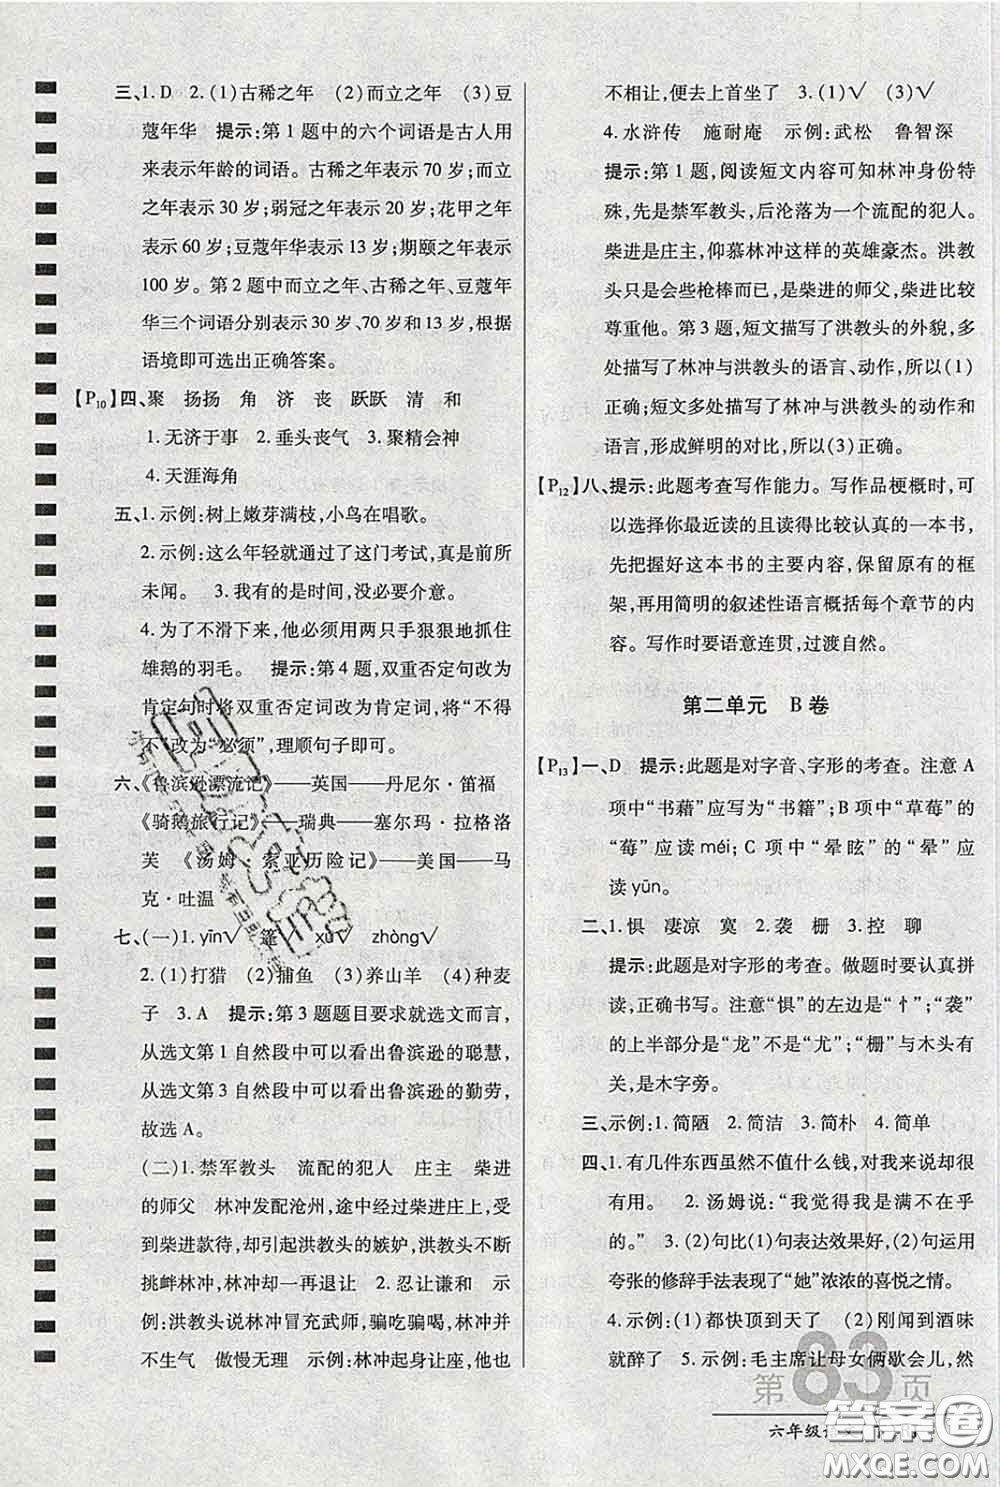 三、1.D　2.(1)古稀之年　(2)而立之年　(3)豆
蔻年华　提示:第1题中的六个词语是古人用
来表示年龄的词语。古稀之年表示70岁;而立
之年表示30岁;弱冠之年表示20岁;花甲之年
表示60岁;豆蔻年华表示13岁;期颐之年表示
100岁。第2题中而立之年、古稀之年、豆蔻年
华三个词语分别表示30岁、70岁和13岁,根据
语境即可选出正确答案。
【P10】四、聚　扬扬　角　济　丧　跃跃　清　和
1.无济于事　2.垂头丧气　3.聚精会神
4.天涯海角
五、1.示例:树上嫩芽满枝,小鸟在唱歌。
2.示例:这么年轻就通过了这门考试,真是前所
未闻。　3.我有的是时间,没必要介意。
4.为了不滑下来,他必须用两只手狠狠地抓住
雄鹅的羽毛。　提示:第4题,双重否定句改为
肯定句时将双重否定词改为肯定词,将“不得
不”改为“必须”,理顺句子即可。
六、《鲁滨逊漂流记》——英国——丹尼尔·笛福
《骑鹅旅行记》——瑞典——塞尔玛·拉格洛
芙　《汤姆·索亚历险记》——美国——马
克·吐温
七、(一)1.yīn√　篷　xù√　zhòng√
2.(1)打猎　(2)捕鱼　(3)养山羊　(4)种麦
子　3.A　提示:第3题题目要求就选文而言,
从选文第1自然段中可以看出鲁滨逊的聪慧,
从选文第3自然段中可以看出鲁滨逊的勤劳,
故选A。
(二)1.禁军教头　流配的犯人　庄主　柴进
的师父　林冲发配沧州,途中经过柴进庄上,受
到柴进款待,却引起洪教头的嫉妒,洪教头不断
挑衅林冲,林冲却一再退让　2.忍让谦和　示
例:洪教头说林冲冒充武师,骗吃骗喝,林冲并
不生气　傲慢无理　示例:林冲起身让座,他也
不相让,便去上首坐了　3.(1)√　(3)√
4.水浒传　施耐庵　示例:武松　鲁智深
提示:第1题,阅读短文内容可知林冲身份特
殊,先是禁军教头,后沦落为一个流配的犯人。
柴进是庄主,仰慕林冲这样的英雄豪杰。洪教
头只是会些枪棒而已,是柴进的师父,柴进比较
尊重他。第3题,短文描写了洪教头的外貌,多
处描写了林冲与洪教头的语言、动作,所以(1)
正确;短文多处描写了林冲与洪教头的动作和
语言,形成鲜明的对比,所以(3)正确。
【P12】八、提示:此题考查写作能力。写作品梗概时,可
以选择你最近读的且读得比较认真的一本书,
先把握好这本书的主要内容,保留原有的框
架,再用简明的叙述性语言概括每个章节的内
容。写作时要语意连贯,过渡自然。
第二单元　B卷
【P13】一、D　提示:此题是对字音、字形的考查。注意A
项中“书藉”应写为“书籍”;B项中“草莓”的
“莓”应读méi;C项中“晕眩”的“晕”应
读yūn。
二、1.惧　凄凉　寞　2.袭　栅　3.控　聊
提示:此题是对字形的考查。做题时要认真拼
读,正确书写。注意“惧”的左边是“忄”;“袭”
的上半部分是“龙”不是“尤”;“栅”与木头有
关,是木字旁。
三、示例:1.简陋　2.简洁　3.简朴　4.简单
四、1.有几件东西虽然不值什么钱,对我来说却很
有用。　2.汤姆说:“我觉得我是满不在乎
的。”　3.(2)句比(1)句表达效果好,(2)句运用
夸张的修辞手法表现了“她”浓浓的喜悦之情。
4.示例:(1)都快顶到天了　(2)刚闻到酒味
就醉了　5.示例:毛主席让母女俩歇会儿,然
第83页
六年级语
答案圈
MXQE.COM